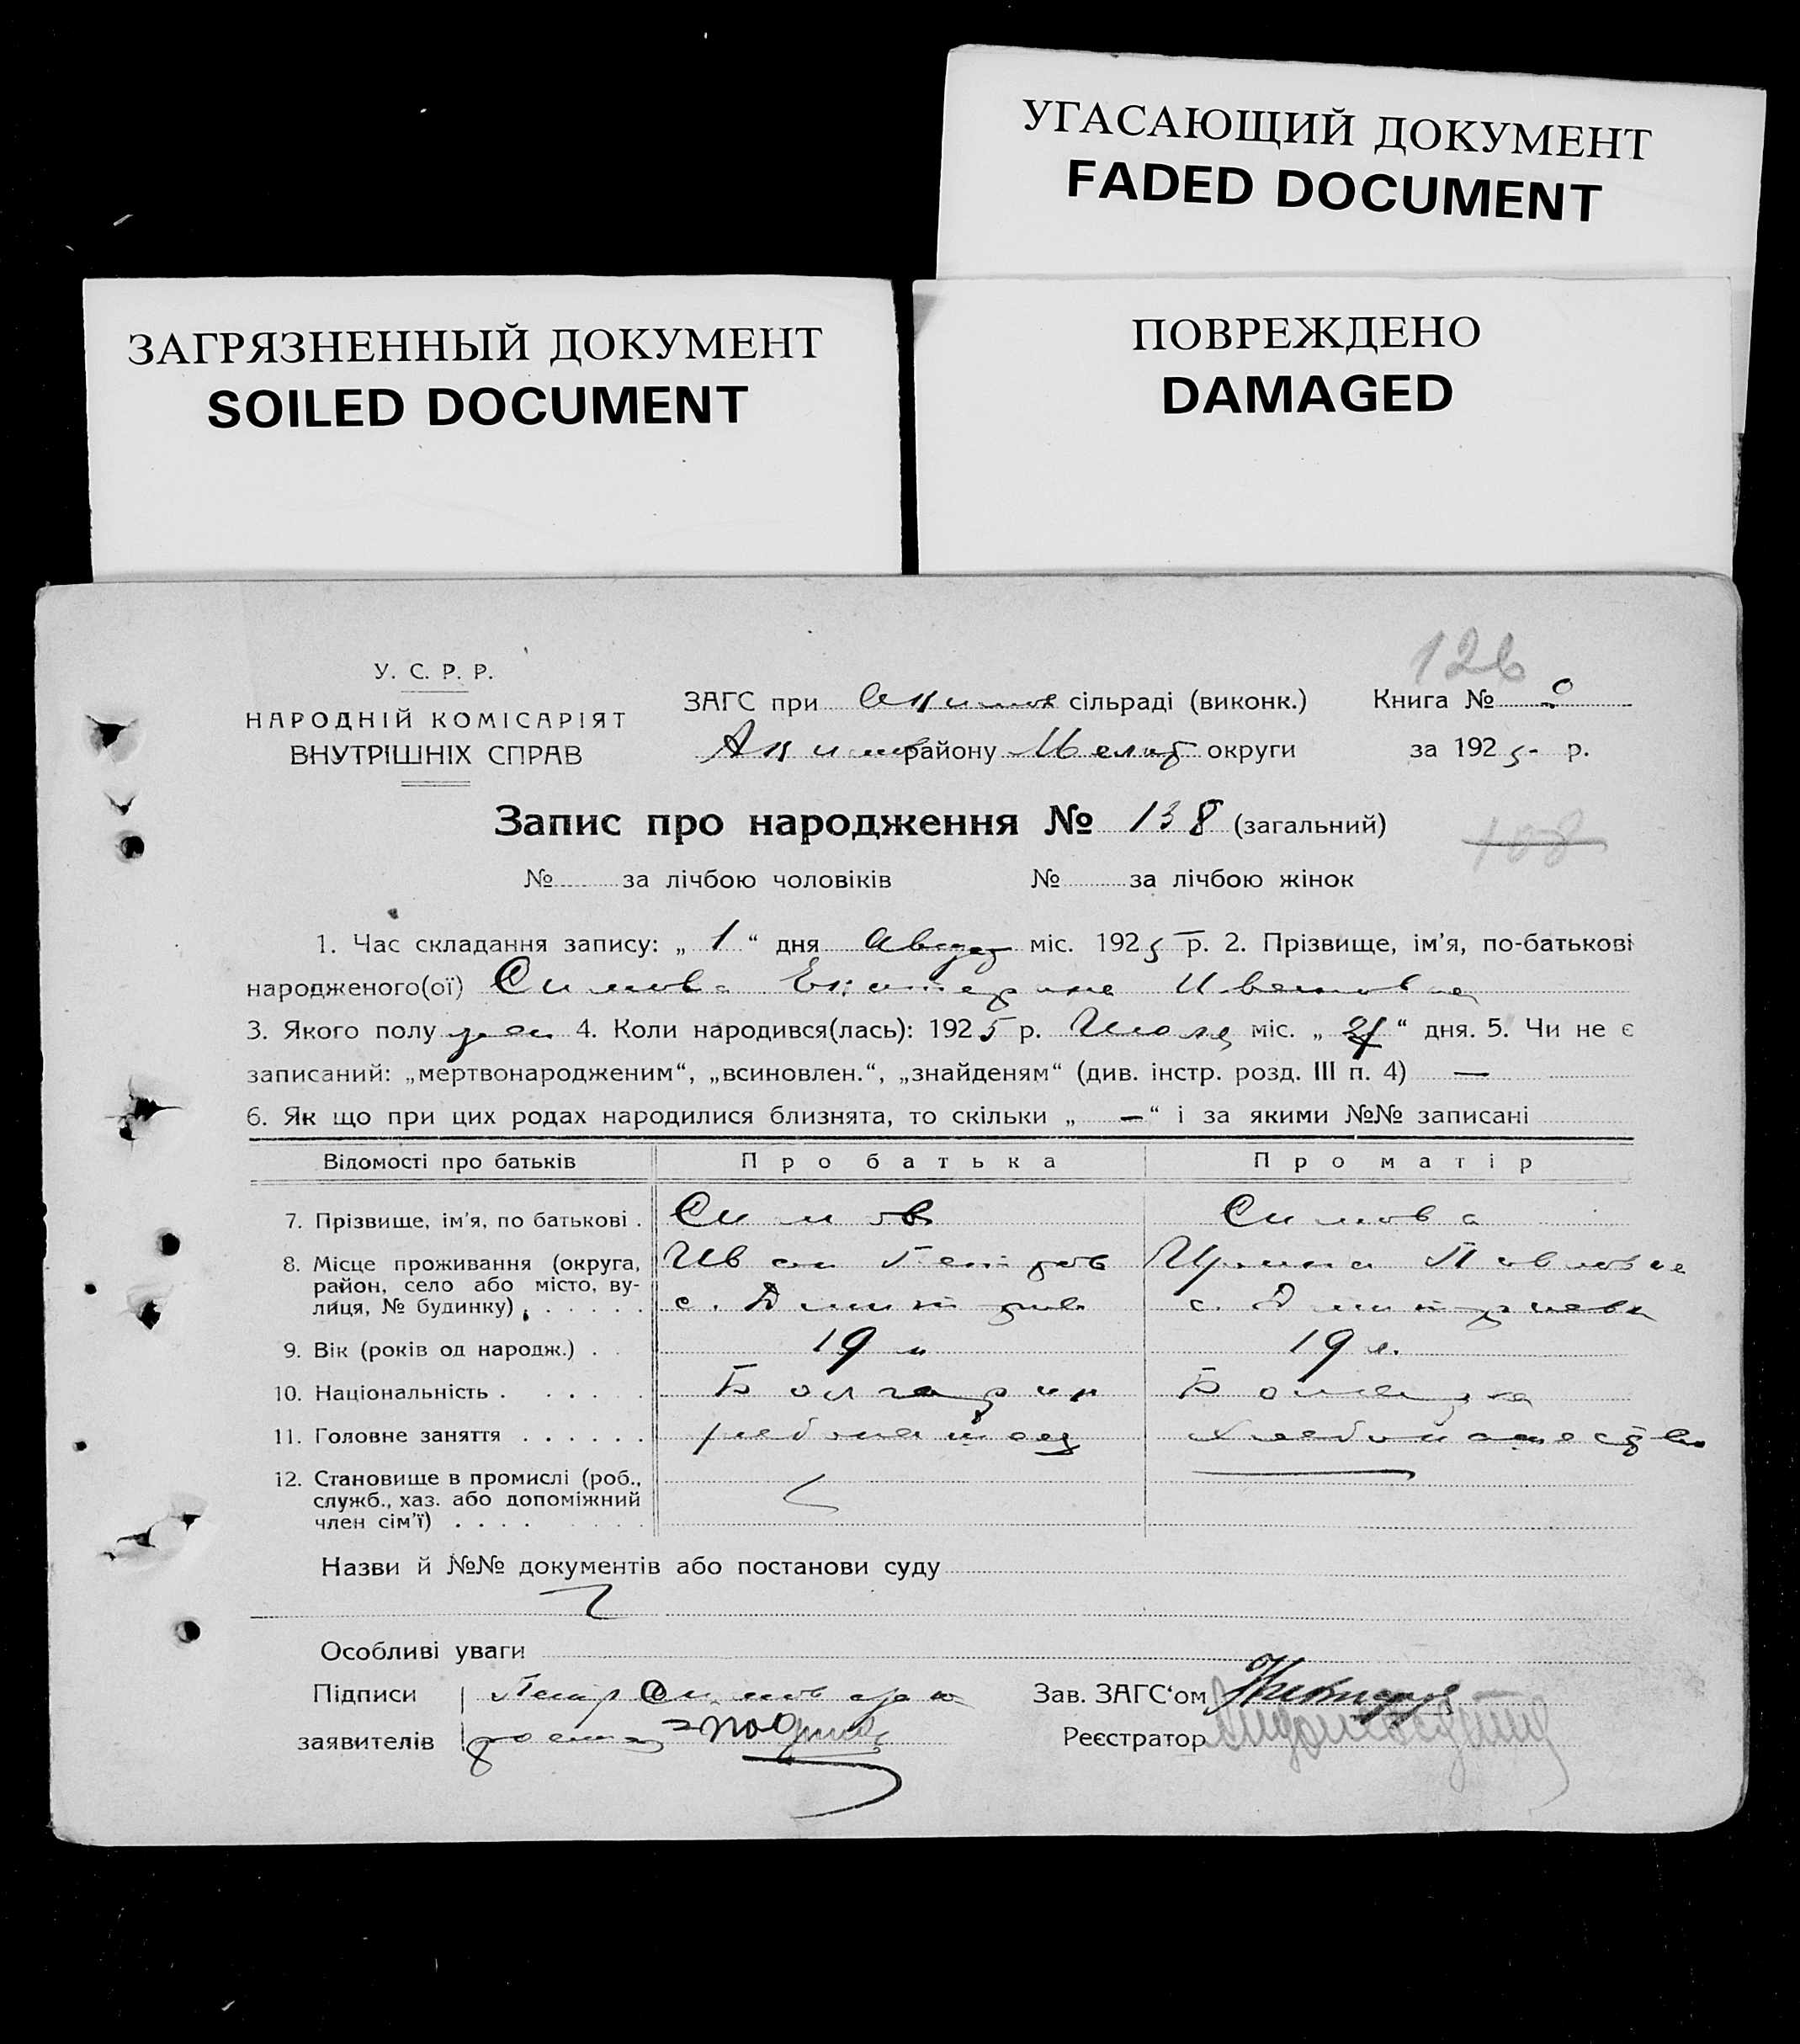 УГАСАЮЩИЙ ДОКУМЕНТ
FADED DOCUMENT
ЗАГРЯЗНЕННЫЙ ДОКУМЕНТ
SOILED DOCUMENT
ПОВРЕЖДЕНО
DAMAGED
126
У. С. Р. Р.
НАРОДНІЙ КОМІСАРІЯТ
ВНУТРІШНІХ СПРАВ
ЗАГС при Акимов сільраді (виконк.) Книга №
Акимов району Мелит округи за 1925 р.
Запис про народження № 138 (загальний)
108
№ за лічбою чоловіків № за лічбою жінок
1. Час складання запису: „ 1 “ дня Август міс. 1925 р. 2. Прізвище, ім’я, по-батькові
народженого(ої) Симова Екатерина Ивановна
3. Якого полу жен 4. Коли народився(лась): 1925 р. Июля міс. „ “ дня. 5. Чи не є
записаний: „мертвонародженим“, „всиновлен.“, „знайденям“ (див. інстр. розд. III п. 4) —
6. Як що при цих родах народилися близнята, то скільки „ — “ і за якими №№ записані
Відомості про батьків Про батька Про матір
7. Прізвище, ім’я, по батькові . Симов Симова
8. Місце проживання (округа, район, село або місто, вулиця, № будинку) . . . . . Иван Петров Ирина Павловна
с. Дмитров с. Дмитриевка
9. Вік (років од народж.) . . 19 л 19 л.
10. Національність . . . . . Болгарин Болгарка
11. Головне заняття . . . . . . хлебопашество
12. Становище в промислі (роб., служб., хаз. або допоміжний член сім’ї) . . . .
Назви й №№ документів або постанови суду
Особливі уваги
Підписи Петр Симов Зав. ЗАГС‘ом
заявителів Реєстратор